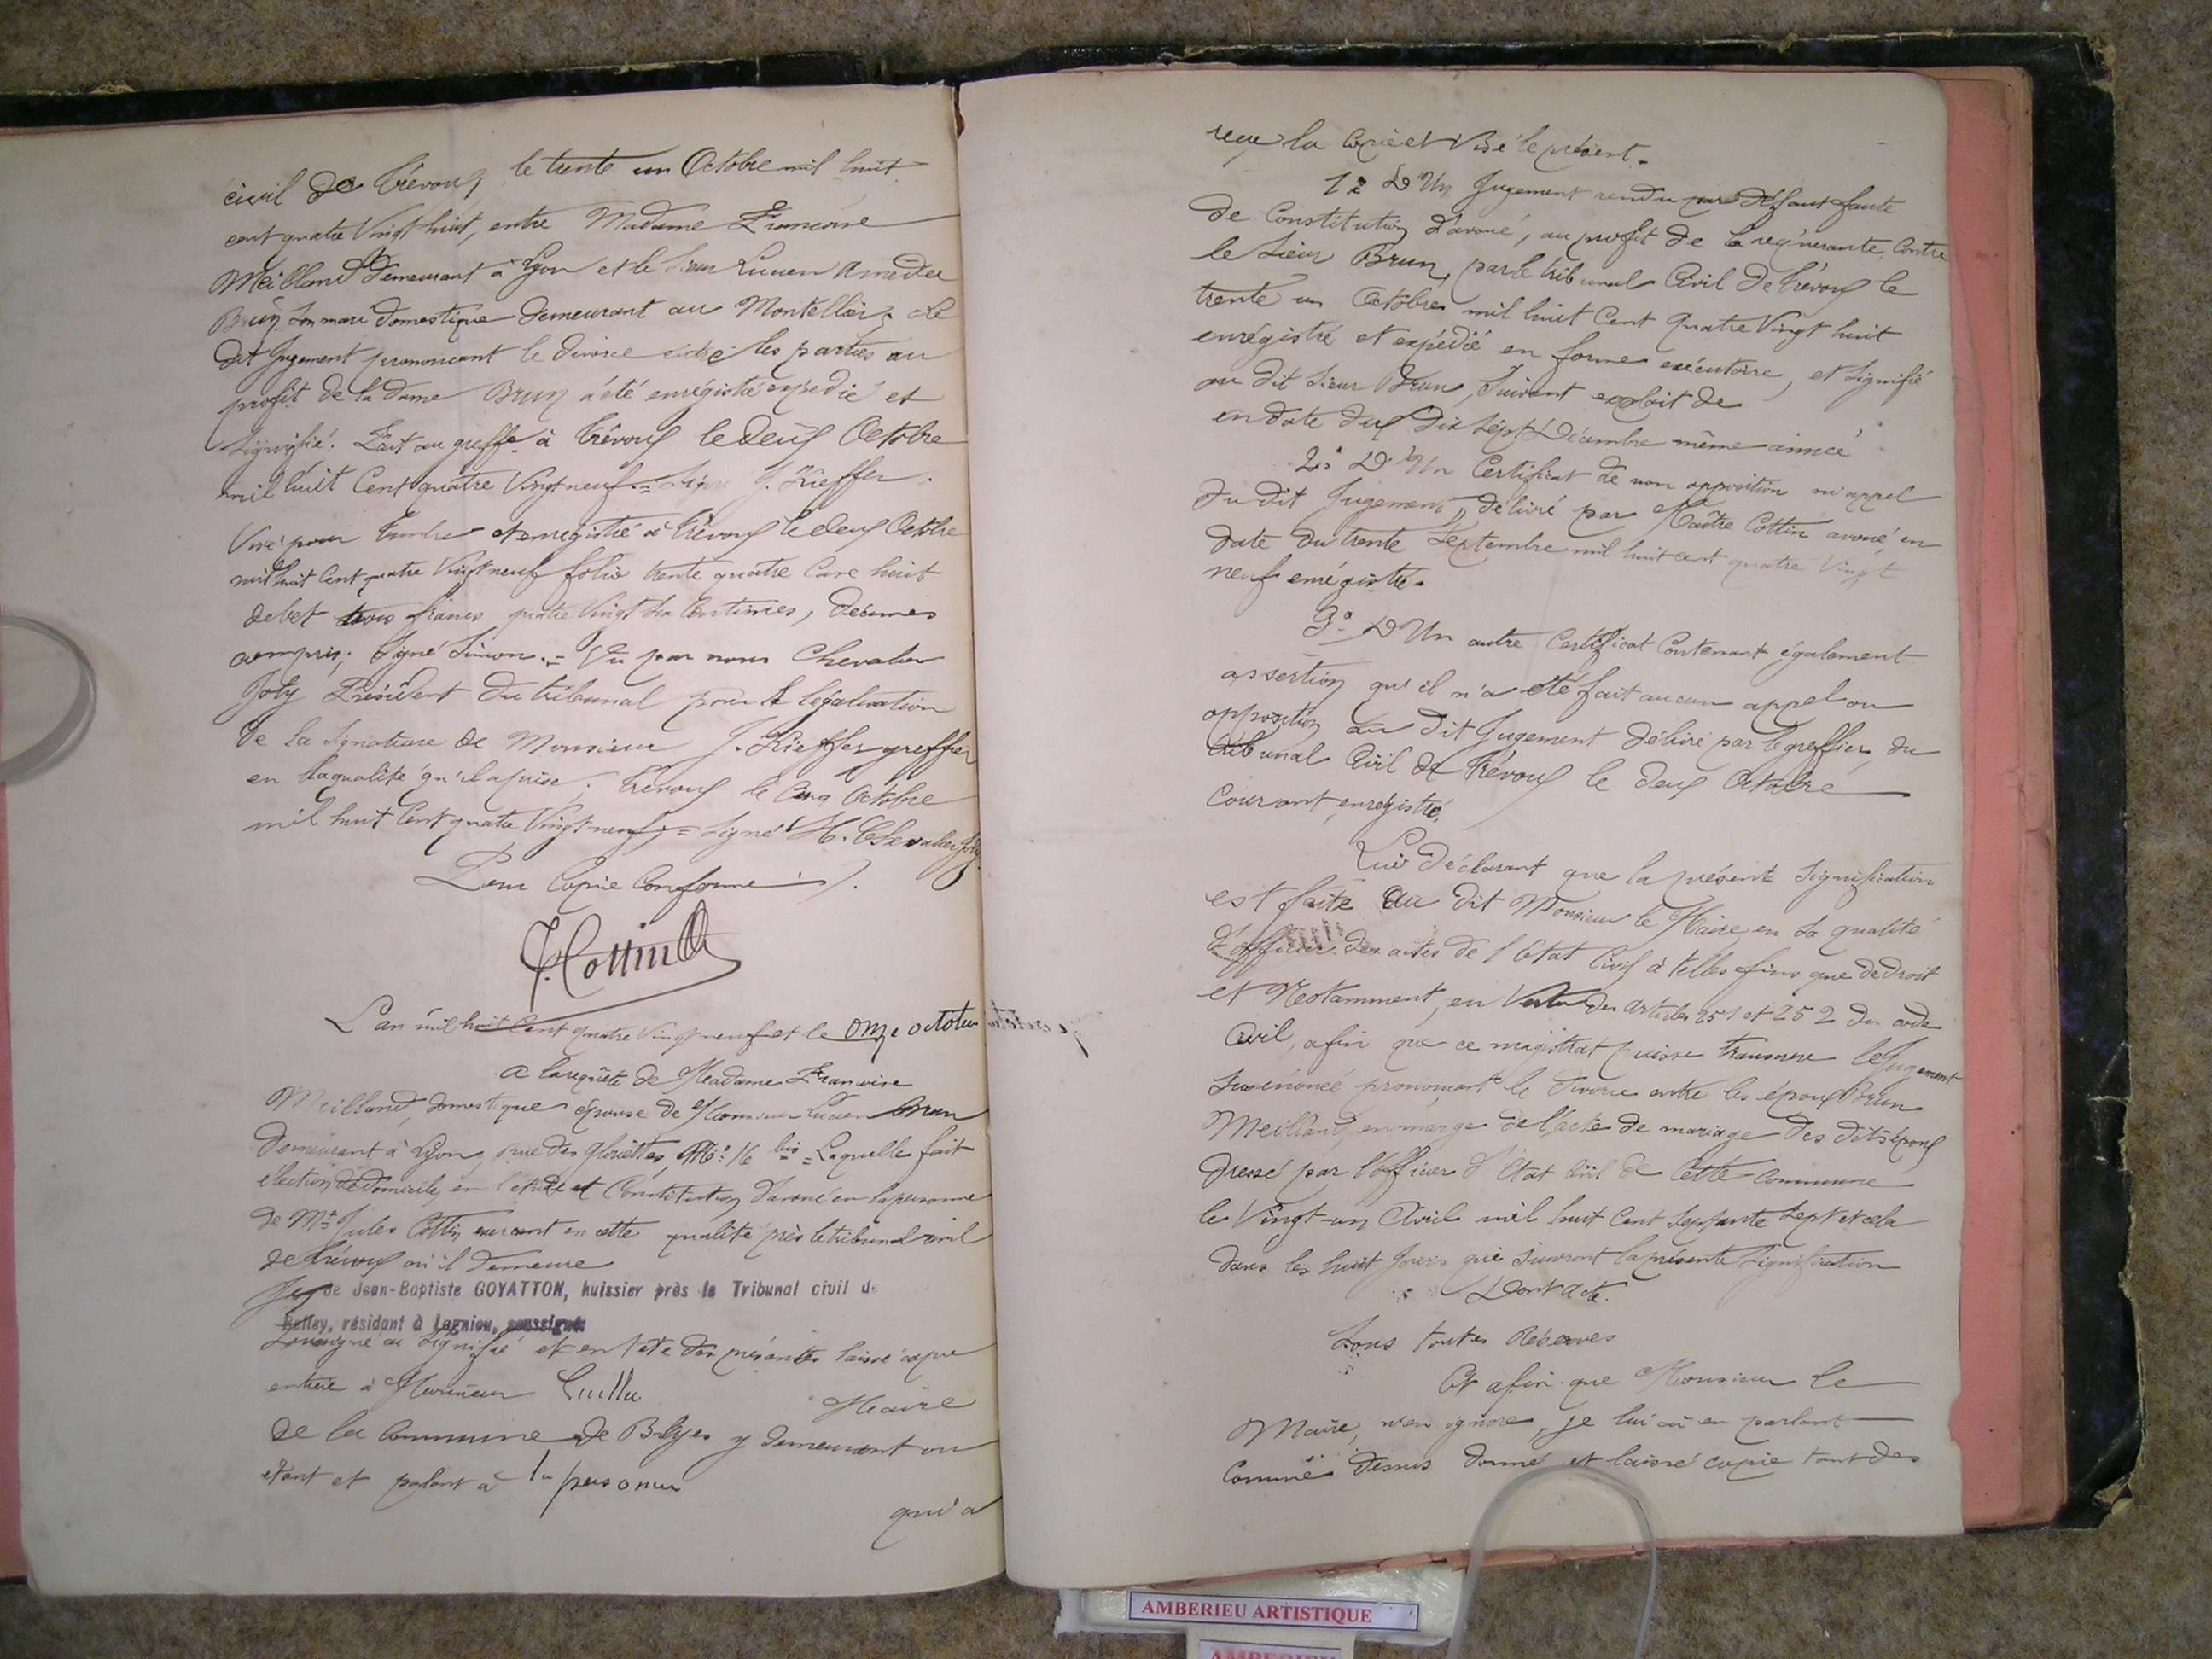 civil de Trévoux le trente un Octobre mil huit
cent quatre Vingt huit, entre Madame Francoise
Meilland demeurant à Lyon et le Sieur Lucien Amedée
Brun son mari domestique demeurant au Montellier. Le
dit Jugement prononcant le divorce entre les parties au
profit de la dame Brun a été enrégistré expedié et
signifié. Fait au greffe à Trévoux le deux Octobre
mil huit Cent quatre Vingt neuf = Signé J. Kieffer.
Visé pour timbre et enregistré à Trévoux le deux Octobre
mil huit Cent quatre Vingt neuf folio trente quatre Case huit
debet trois francs quatre Vingt six Centimes, décimes
compris; Signé Simon. = Vu par nous Chevalier
Joly Président du tribunal pour légalisation
de la signature de Monsieur J. Kieffer greffier
en la qualité qu'il a prise. Trévoux le cinq Octobre
mil huit Cent quatre Vingt neuf = Signé H. Chevalier Joly
Pour Copie Conforme
J. Cottin
L'an mil huit Cent quatre Vingt neuf et le onze octobre
A la requête de Madame Francoise
Meilland, domestique épouse de Monsieur Lucien Brun
demeurant à Lyon, rue des Gloriettes, No. 16 bis = Laquelle fait
élection de domicile en l'étude et Constitution d'avoué en la personne
de Me Jules Cottin exercant en cette qualité près le tribunal civil
de Trévoux où il demeure
Je de Jean-Baptiste GOYATTON, huissier près le Tribunal civil de
Belley, résidant à Lagnieu, soussigné
Soussigné ai signifié et en tête des présentes laissé copie
entière à Monsieur Maire
de la Commune de Blyes y demeurant ou
étant et parlant à sa personne
qui a
reçu la Copie et Visé le présent.
1º D'Un Jugement rendu par défaut faute
de Constitution d'avoué, au profit de la requérante, Contre
le Sieur Brun, par le tribunal Civil de Trévoux le
trente un Octobre mil huit Cent Quatre Vingt huit
enrégistré et expédié en forme exécutoire, et signifié
au dit Sieur Brun, Suivant exploit de
en date du dix sept Décembre même année
2º D'Un Certificat de non opposition ni appel
du dit Jugement, délivré par Maître Cottin avoué, en
date du trente Septembre mil huit cent quatre Vingt
neuf enrégistré.
3º D'Un autre Certificat Contenant également
assertion qu'il n'a été fait aucun appel ou
opposition au dit Jugement délivré par le greffier du
tribunal Civil de Trévoux le deux Octobre
Courant, enrégistré.
Lui déclarant que la présente Signification
est faite au dit Monsieur le Maire en sa qualité
d'officier des actes de l'Etat Civil à telles fins que de droit
et Notamment, en Vertu des articles 251 et 252 du code
Civil, afin que ce magistrat puisse transcrire le Jugement
Susénoncé prononcant le divorce entre les époux Brun
Meilland, en marge de l'acte de mariage des dits époux
dressé par l'officier d'Etat Civil de Cette Commune
le Vingt-un Avril mil huit Cent Septante Sept et cela
dans les huit Jours qui suivront la présente Signification
Dont Acte.
Sous toutes Réserves
Et afin que Monsieur le
Maire, n'en ignore, je lui ai en parlant
Comme dessus donné et laissé copie tant des
AMBERIEU ARTISTIQUE
AMBERIEU